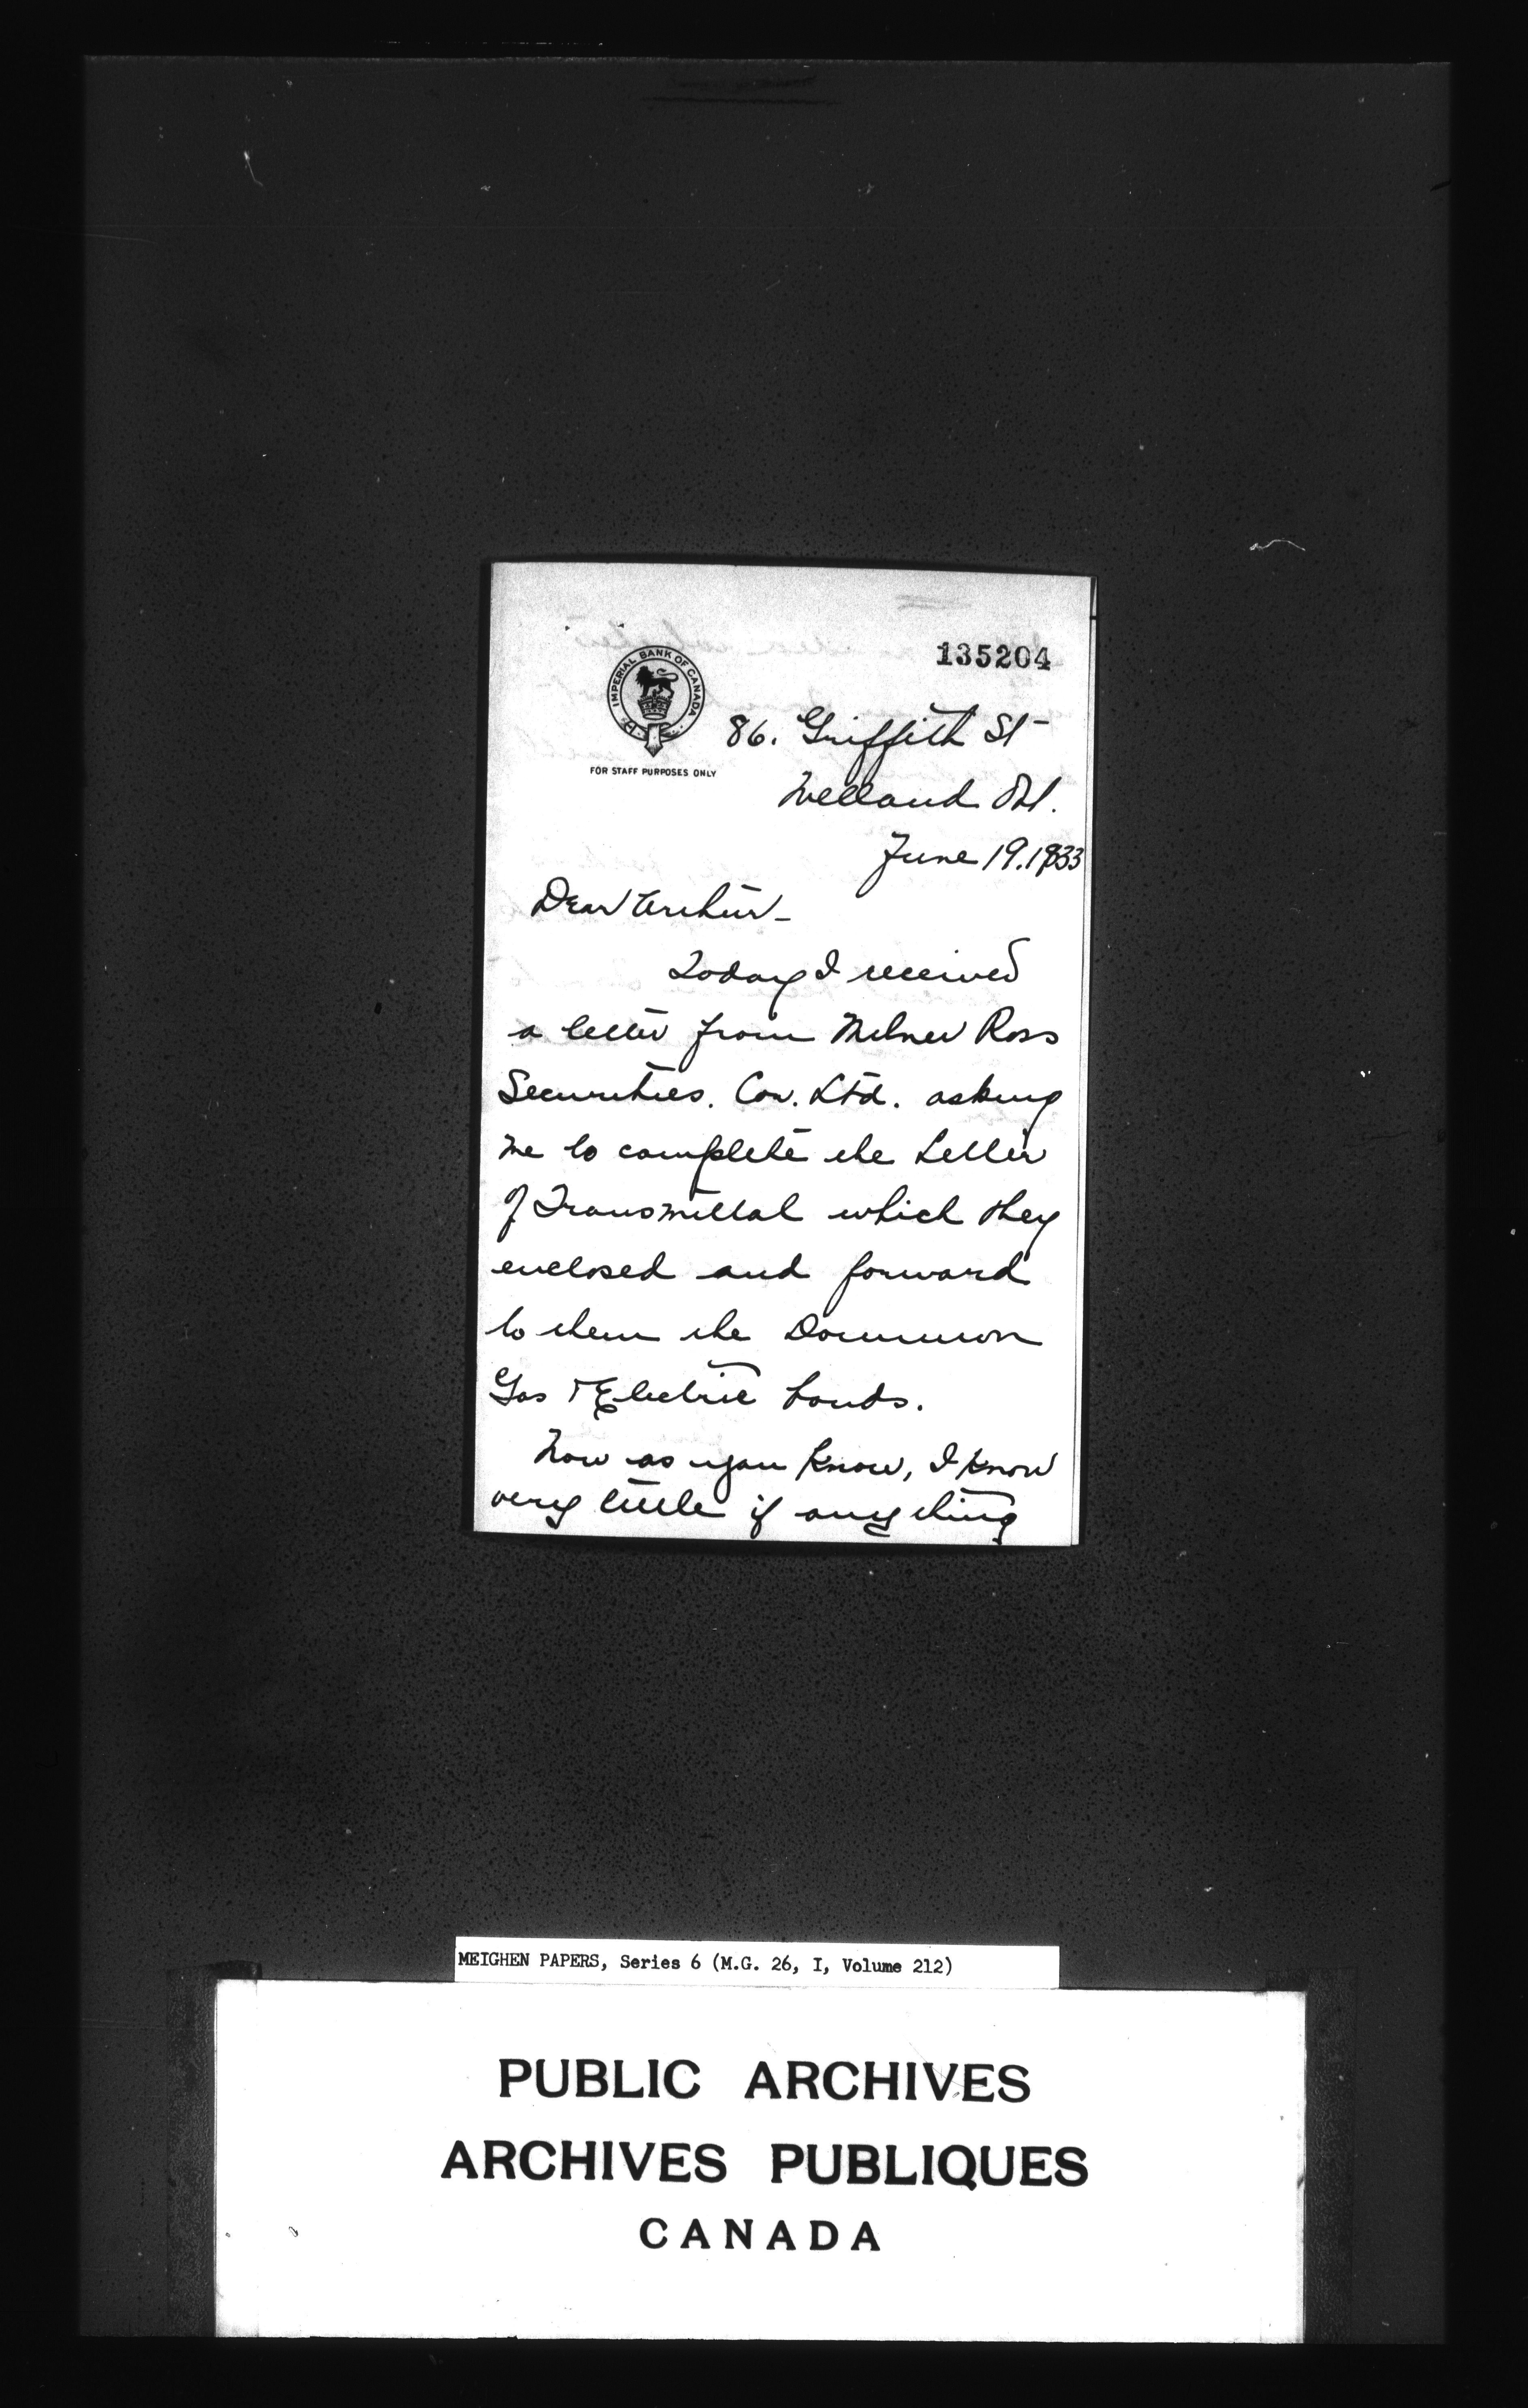 135204
IMPERIAL BANK OF CANADA
FOR STAFF PURPOSES ONLY
86. Griffith St
Welland Ont.
June 19. 1933
Dear Arthur -
Today I received
a letter from Milner Ross
Securities. Cor. Ltd. asking
me to complete the Letter
of Transmittal which they
enclosed and forward
to them the Dominion
Gas & Electric bonds.
Now as you know, I know
very little if anything
MEIGHEN PAPERS, Series 6 (M.G. 26, I, Volume 212)
PUBLIC ARCHIVES
ARCHIVES PUBLIQUES
CANADA